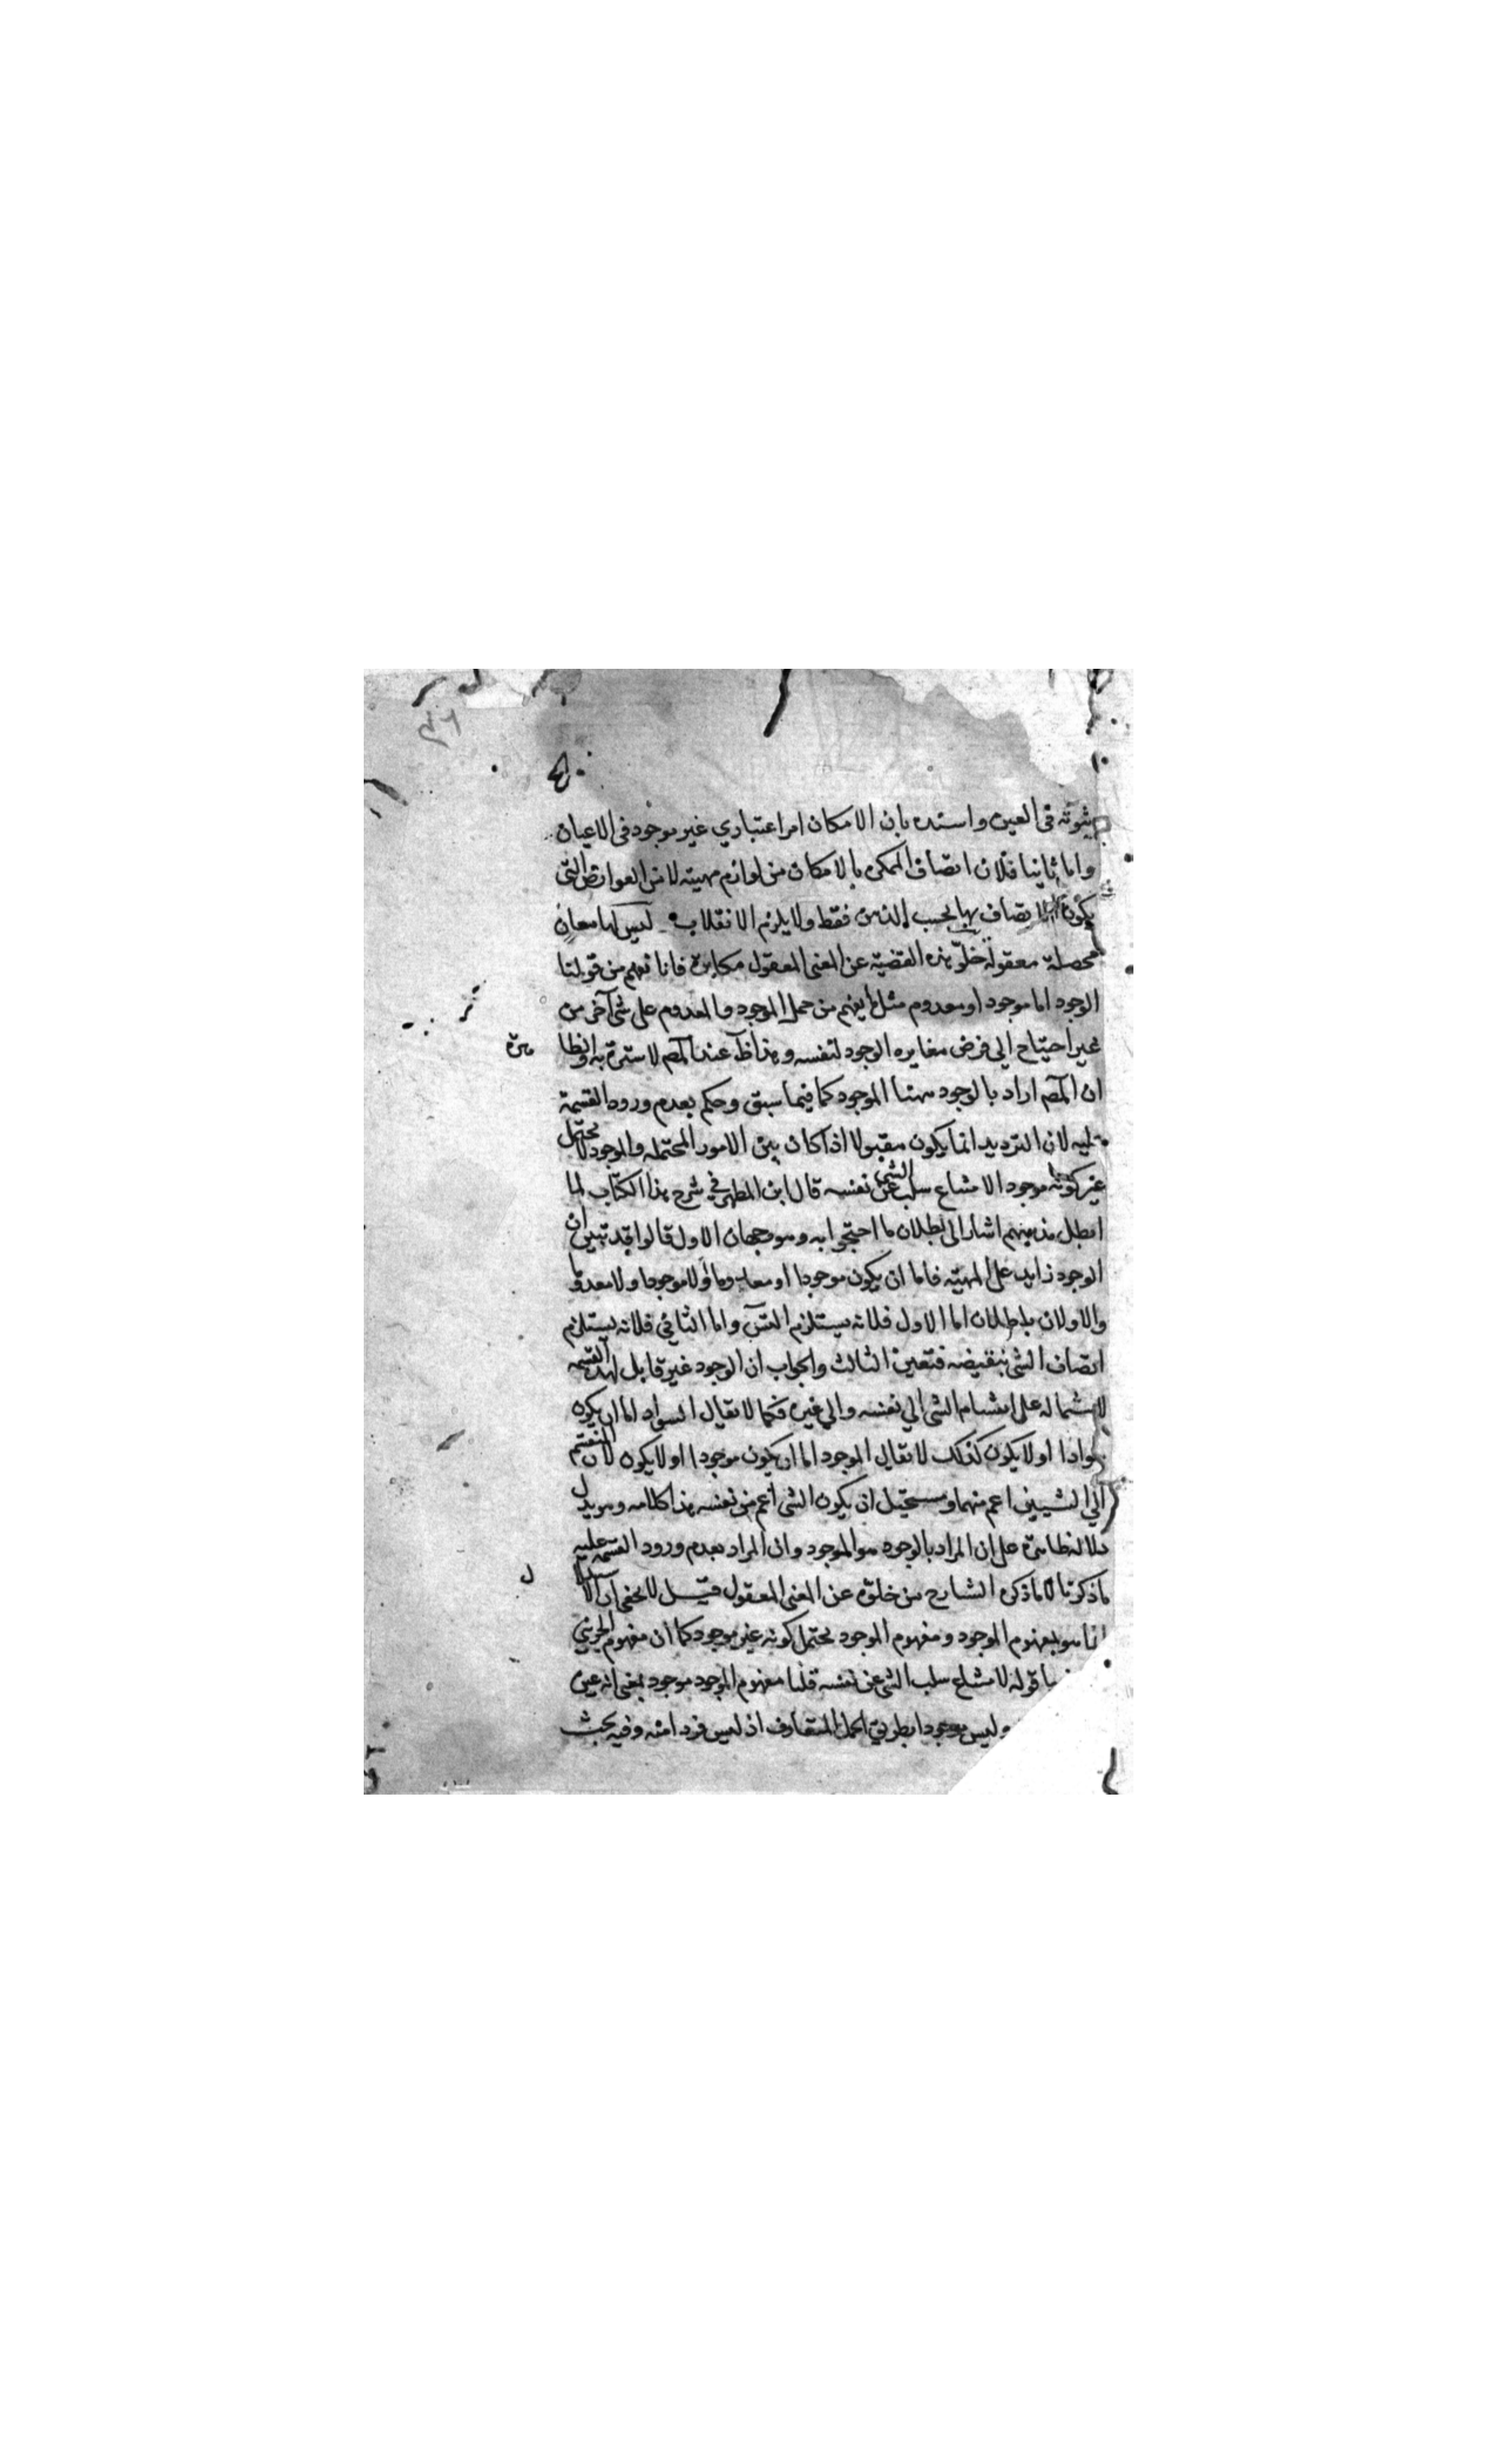 ثبوته فى العين واسنده بان الامكان امر اعتباري غير موجود فى الاعيان
واما ثانيا فلان اتصاف الممكن بالامكان من لوازم مهيته لا من العوارض التى
يكون الاتصاف بها بحسب الذهن فقط ولا يلزم الانقلاب ليس لها معان
محصلة معقولة خلوّ هذه القضية عن المعنى المعقول مكابرة فانا نفهم من قولنا
الوجود اما موجود او معدوم مثل ما يفهم من حمل الموجود والمعدوم على شى آخر من
غير احتياج الي فرض مغايره الوجود لنفسه وهذا ظ عند المصـ لا سترة به والظا
ان المصـ اراد بالوجود ههنا الموجود كما فيما سبق وحكم بعدم ورود القسمة
عليه لان الترديد انما يكون مقبولا اذا كان بين الامور المحتمله والموجود لا يحتمل
غير كونه موجودا لامتناع سلب الشى عن نفسه قال ابن المطهر في شرح هذا الكتاب لما
ابطل مذهبهم اشار الى بطلان ما احتجوا به وهو وجهان الاول قالوا قد تبين ان
الوجود زايد على المهيّه فاما ان يكون موجودا او معدوما او لا موجودا ولا معدوما
والاولان باطلان اما الاول فلانه يستلزم التسـ واما الثاني فلانه يستلزم
اتصاف الشى بنقيضه فتعين الثالث والجواب ان الوجود غير قابل لهذه القسمه
لاستحاله على انقسام الشى الي نفسه والي غيره فكما لا يقال السواد اما ان يكون
سوادا او لا يكون كذلك لا يقال الموجود اما ان يكون موجودا او لا يكون لان المنقسم
الي الشيين اعم منهما ويستحيل ان يكون الشى اعم من نفسه هذا كلامه وهو يدل
دلاله ظاهرة على ان المراد بالوجود هو الموجود وان المراد بعدم ورود القسمه عليه
ما ذكرنا لا ما ذكره الشارح من خلوّه عن المعنى المعقول قيل لا يخفى ان
انما هو بمفهوم الموجود ومفهوم الموجود يحتمل كونه غير موجود كما ان مفهوم الجزئي
قوله لامتناع سلب الشى عن نفسه قلنا مفهوم الموجود موجود بمعنى انه عين
وليس موجودا بطريق الحمل المتعارف اذ ليس فردا منه وفيه بحث